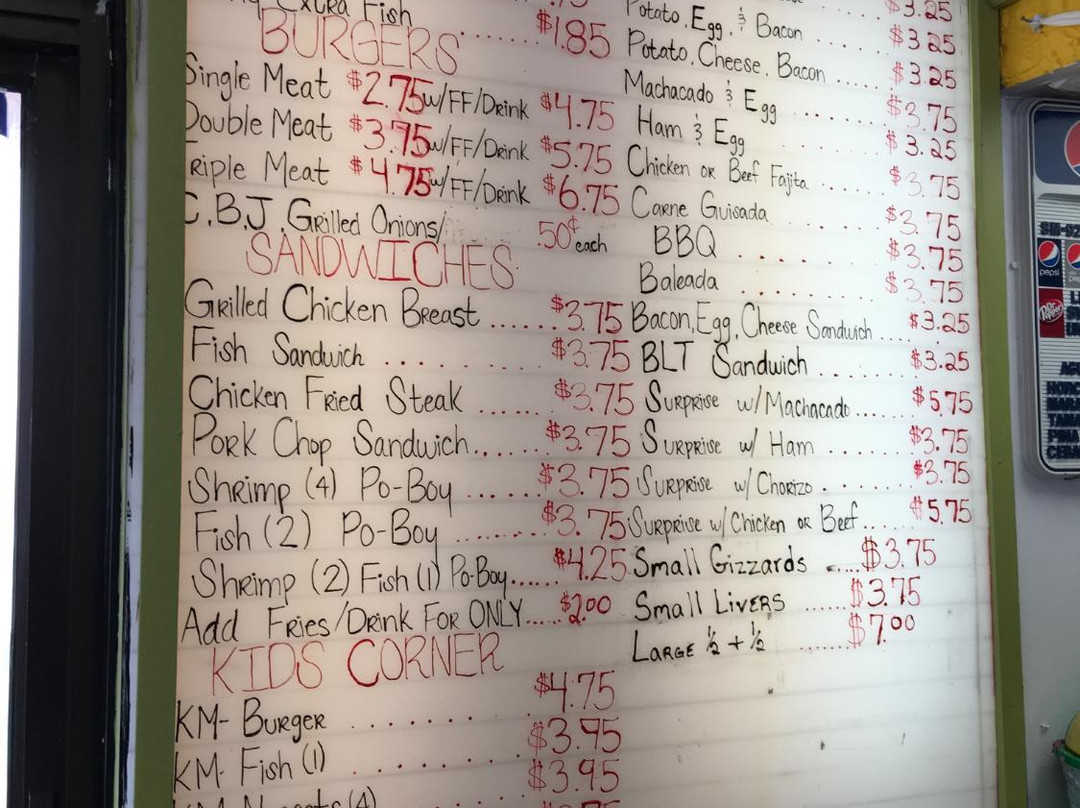 Extra Fish ...... $1.85
BURGERS
Single Meat $2.75 w/FF/Drink $4.75
Double Meat $3.75 w/FF/Drink $5.75
Triple Meat $4.75 w/FF/Drink $6.75
C,B,J,Grilled Onions/ .50¢ each
SANDWICHES
Grilled Chicken Breast ...... $3.75
Fish Sandwich ........ $3.75
Chicken Fried Steak ...... $3.75
Pork Chop Sandwich...... $3.75
Shrimp (4) Po-Boy ...... $3.75
Fish (2) Po-Boy ........ $3.75
Shrimp (2) Fish (1) Po-Boy...... $4.25
Add Fries/Drink For ONLY..... $2.00
KIDS CORNER
KM- Burger ........ $4.75
KM- Fish (1) ........ $3.95
KM Nuggets (4) $3.95
$3.25
Potato, Egg, & Bacon ...... $3.25
Potato, Cheese, Bacon ..... $3.25
Machacado & Egg ....... $3.75
Ham & Egg ........ $3.25
Chicken or Beef Fajita ...... $3.75
Carne Guisada ....... $3.75
BBQ ...... $3.75
Baleada ........ $3.75
Bacon, Egg, Cheese Sandwich .... $3.25
BLT Sandwich ...... $3.25
Surprise w/Machacado...... $5.75
Surprise w/ Ham ...... $3.75
Surprise w/ Chorizo ...... $3.75
Surprise w/Chicken or Beef.... $5.75
Small Gizzards ..... $3.75
Small Livers ...... $3.75
Large ½ + ½ ....... $7.00
pepsi
Dr Pepper